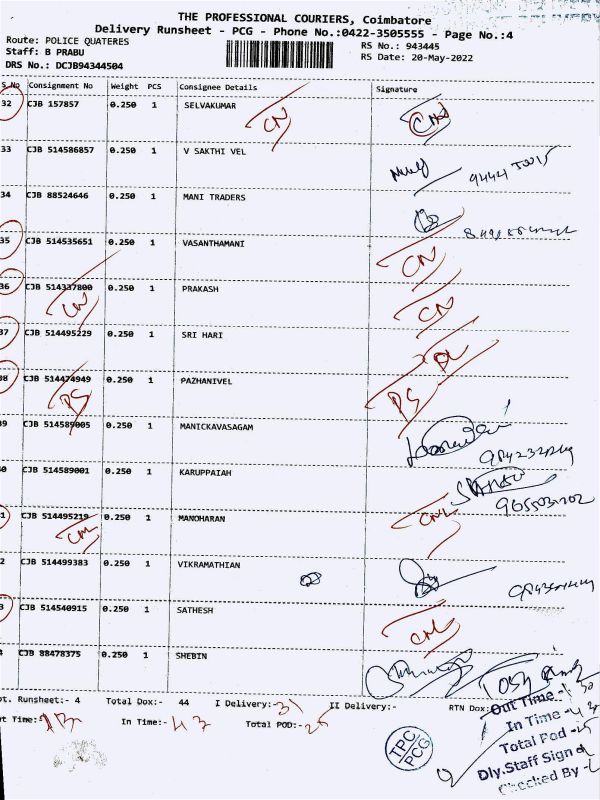 THE PROFESSIONAL COURIERS, Coimbatore
Delivery Runsheet - PCG - Phone No.:0422-3505555 - Page No.:4
Route: POLICE QUATERES
RS No.: 943445
Staff: B PRABU
RS Date: 20-May-2022
DRS No.: DCJB94344504
S No Consignment No Weight PCS Consignee Details Signature
32 CJB 157857 0.250 1 SELVAKUMAR CN
33 CJB 514586857 0.250 1 V SAKTHI VEL
34 CJB 88524646 0.250 1 MANI TRADERS
35 CJB 514535651 0.250 1 VASANTHAMANI CN
36 CJB 514337800 0.250 1 PRAKASH CN
CN
37 CJB 514495229 0.250 1 SRI HARI
38 CJB 514474949 0.250 1 PAZHANIVEL PS
PS
39 CJB 514589005 0.250 1 MANICKAVASAGAM
CJB 514589001 0.250 1 KARUPPAIAH
CJB 514495219 0.250 1 MANOHARAN
CJB 514499383 0.250 1 VIKRAMATHIAN
CJB 514540915 0.250 1 SATHESH
CJB 88478375 0.250 1 SHEBIN
Runsheet:- 4 Total Dox:- 44 I Delivery:- 31 II Delivery:- RTN Dox:
Time: In Time:- 43 Total POD:- 25
Out Time -
In Time -
Total Pod -
Dly.Staff Sign
Checked By -
TPC
PCG